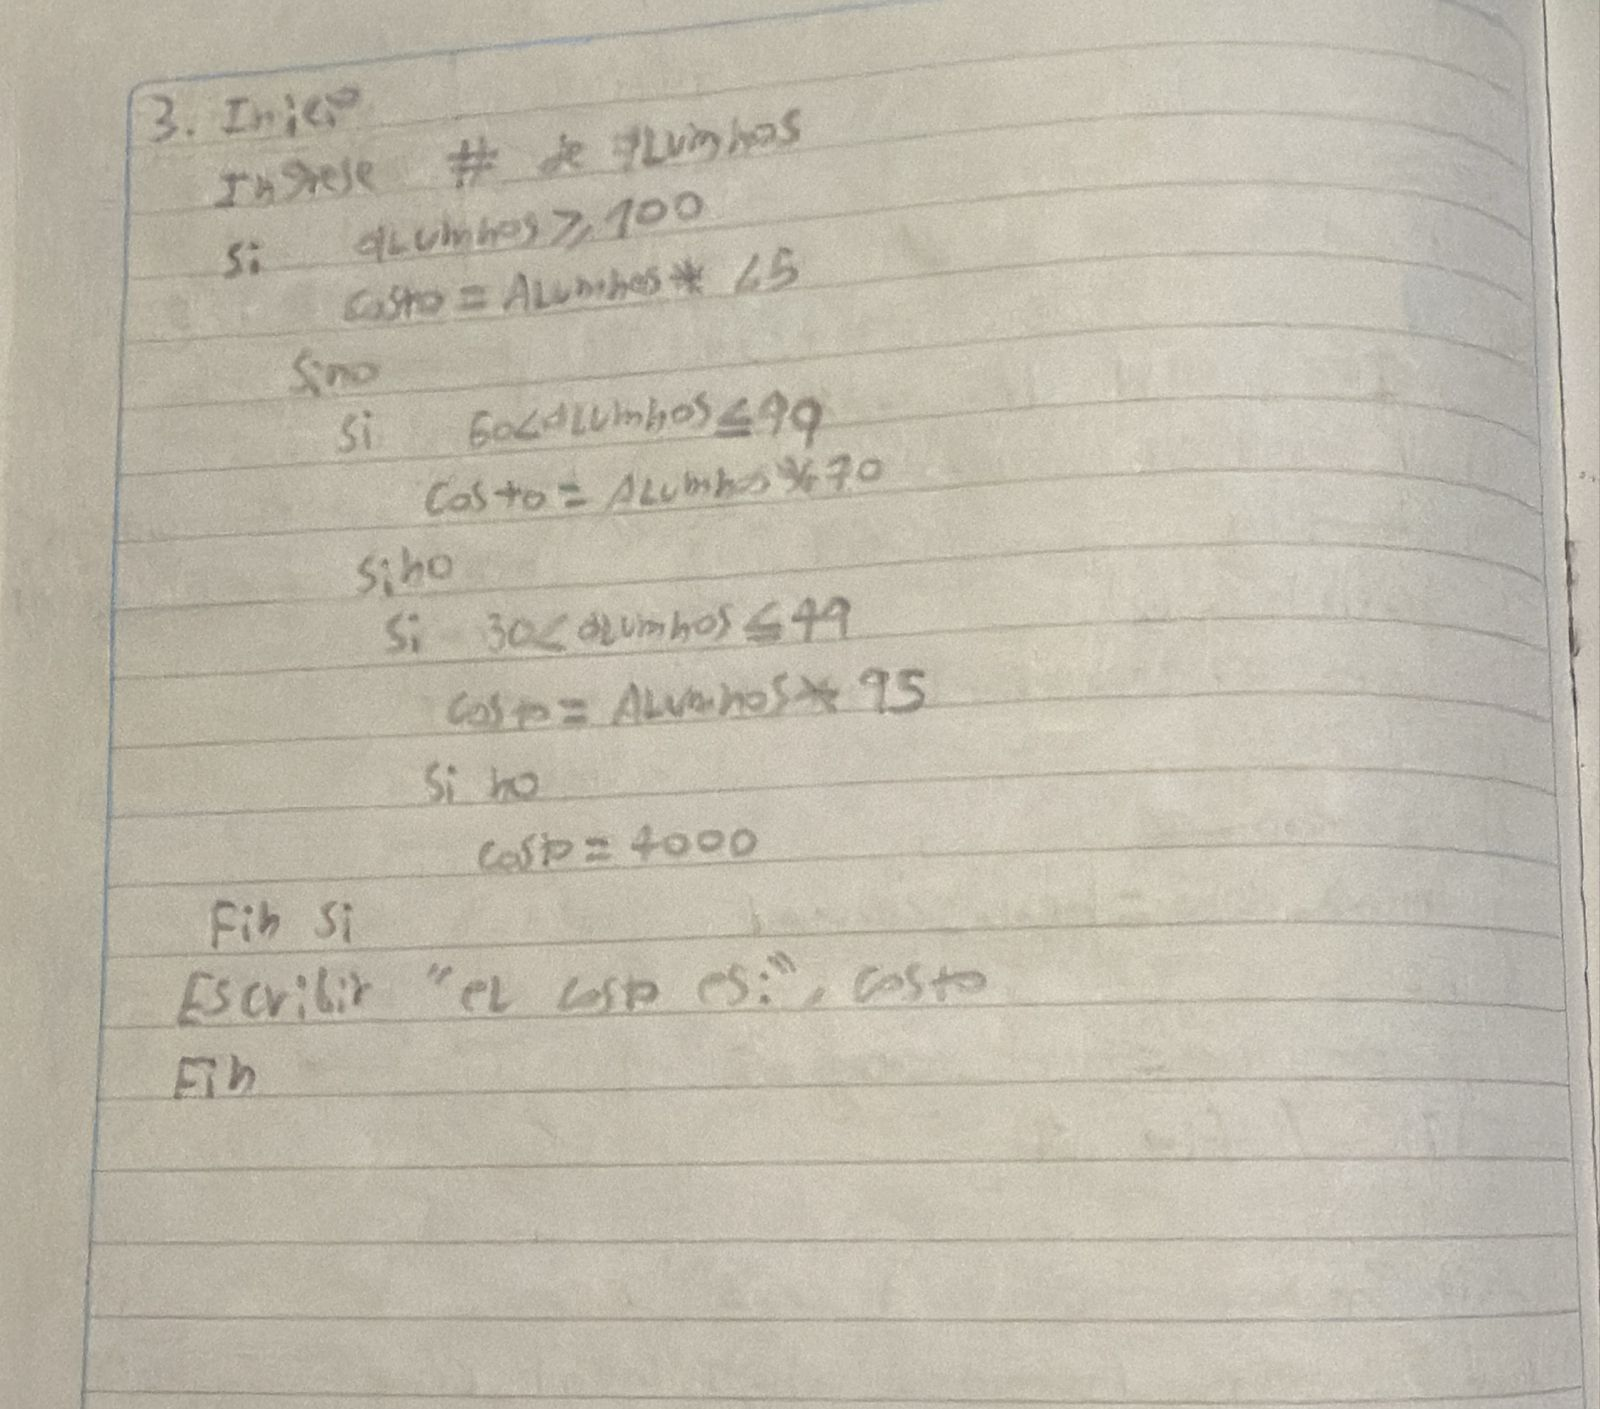 3. Inicio
Ingrese # de alumnos
Si alumnos ≥ 100
costo = Alumnos * 65
Sino
Si 50<alumnos ≤ 99
Costo = Alumnos * 70
Sino
Si 30< alumnos ≤ 49
costo = Alumnos * 95
Si no
costo = 4000
Fin Si
Escribir "el costo es:", costo
Fin